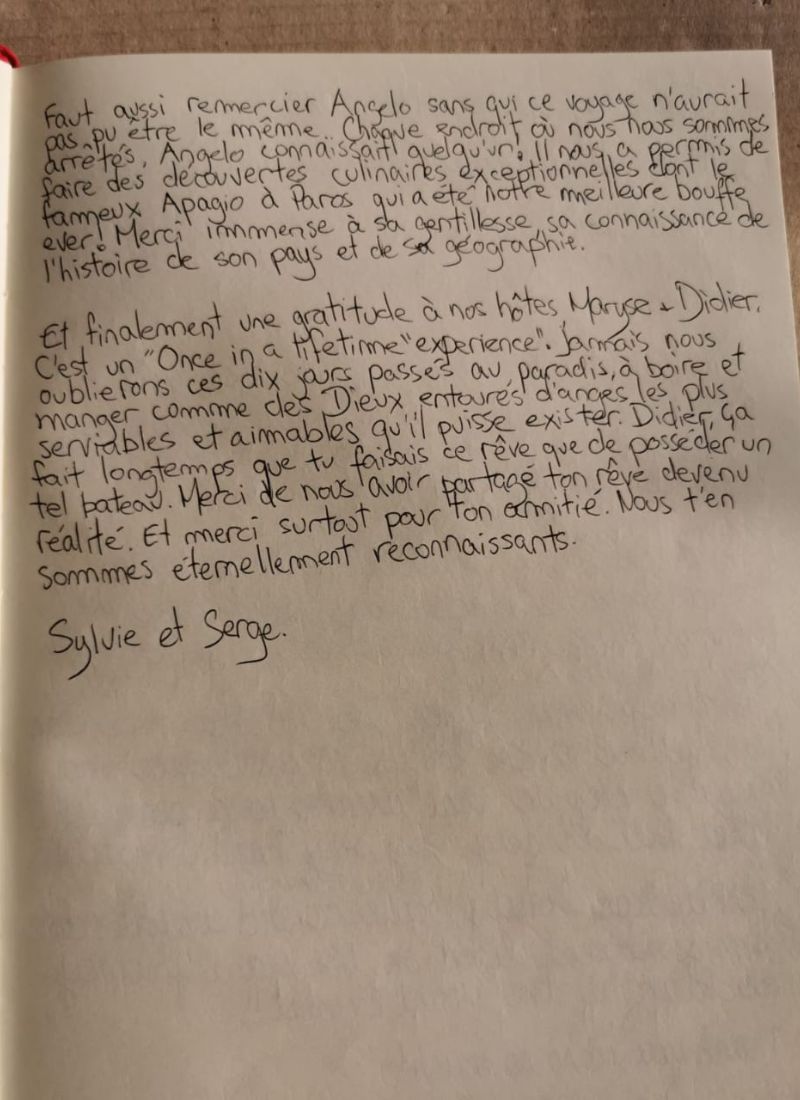 Faut aussi remercier Angelo sans qui ce voyage n'aurait
pas pu être le même. Chaque endroit où nous nous sommes
arrêtés, Angelo connaissait quelqu'un! Il nous a permis de
faire des découvertes culinaires exceptionnelles dont le
fameux Apagio à Paros qui a été notre meilleure bouffe
ever! Merci immense à sa gentillesse, sa connaissance de
l'histoire de son pays et de sa géographie.
Et finalement une gratitude à nos hôtes Maryse + Didier.
C'est un "Once in a lifetime "experience". Jamais nous
oublierons ces dix jours passés au paradis, à boire et
manger comme des Dieux entourés d'anges les plus
serviables et aimables qu'il puisse exister. Didier, ça
fait longtemps que tu faisais ce rêve que de posséder un
tel bateau. Merci de nous avoir partagé ton rêve devenu
réalité. Et merci surtout pour ton amitié. Nous t'en
sommes éternellement reconnaissants.
Sylvie et Serge.